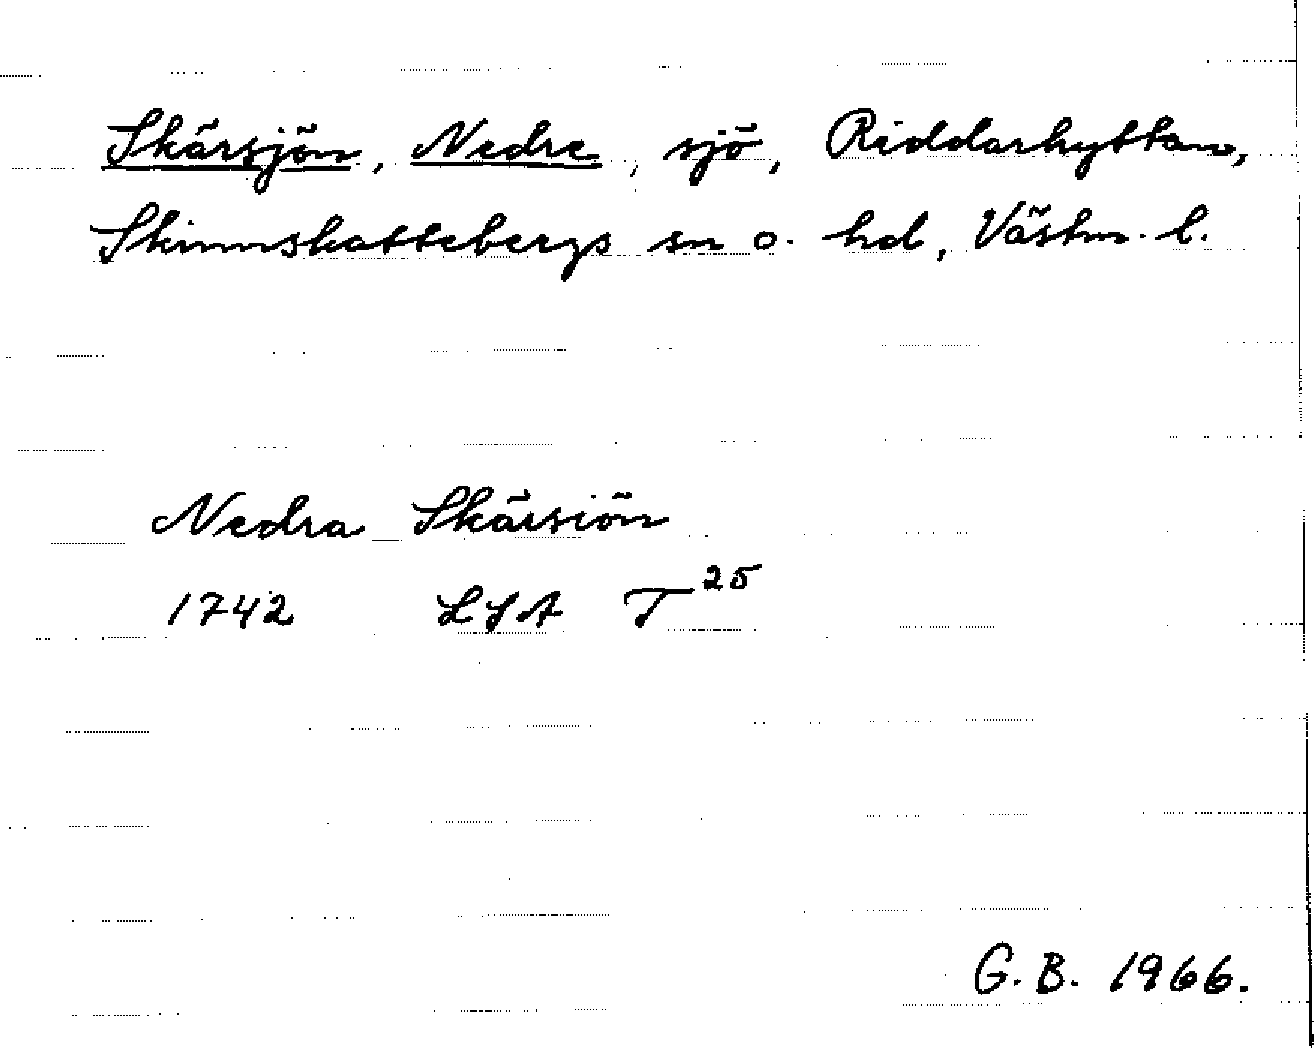 Skärsjön, Nedre, sjö, Riddarhyttan,
Skinnskattebergs sn o. hd, Västm. l.
Nedra Skärsiön
1742 LSA T25
G. B. 1966.